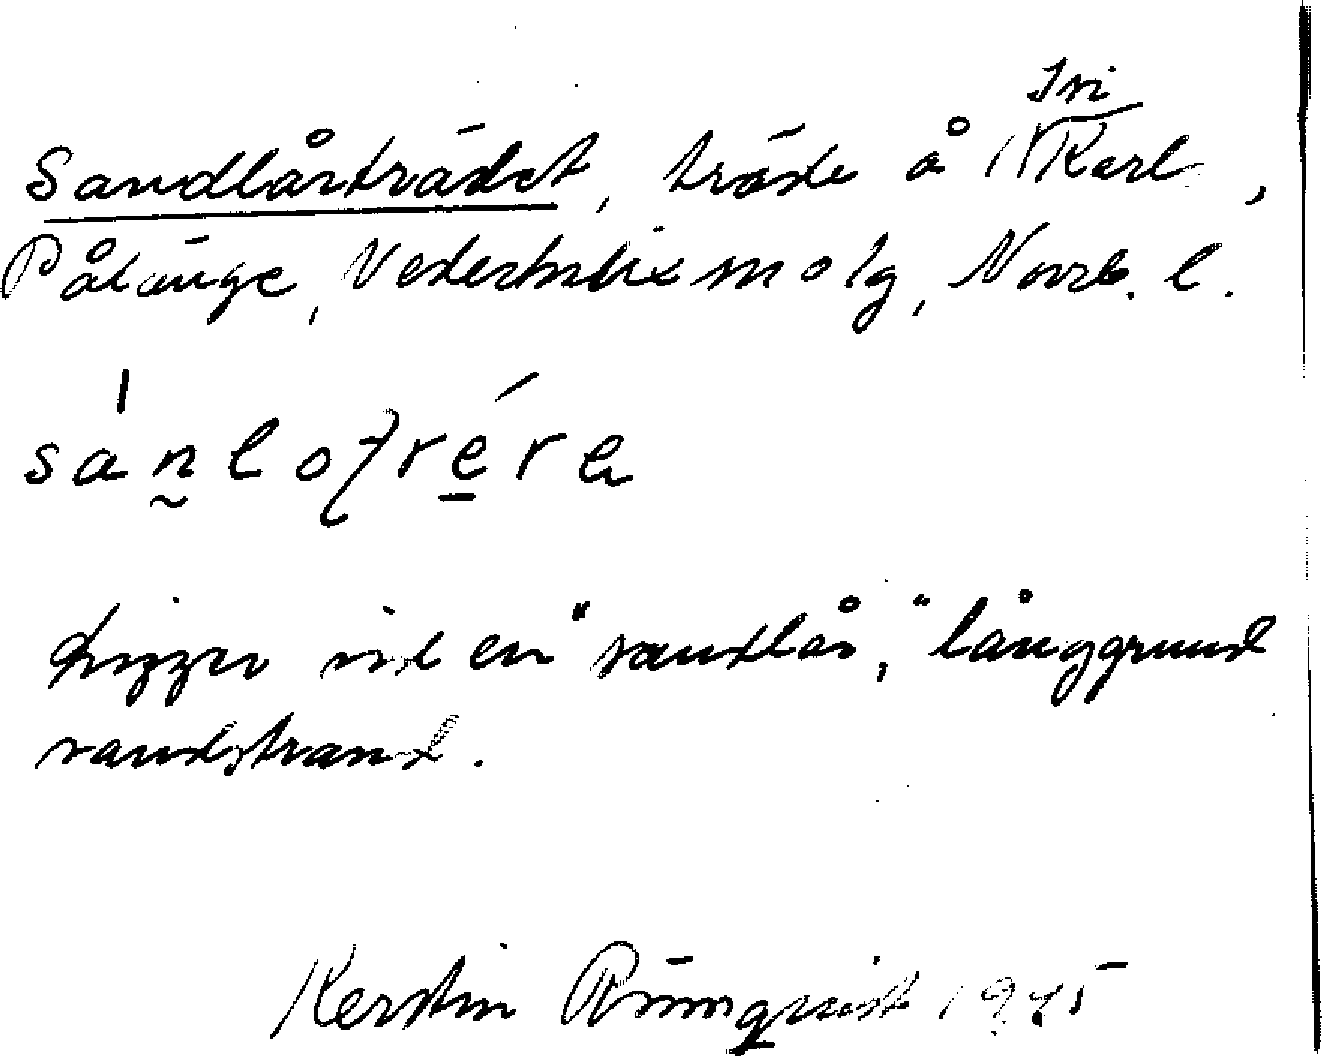 Sandlårträdet, träde å Karl,
Pålänge, Nederkalix molg, Norrb. l.
Ligger vid en "sandlår," långgrund
sandstrand.
Kerstin Rönnqvist 1945